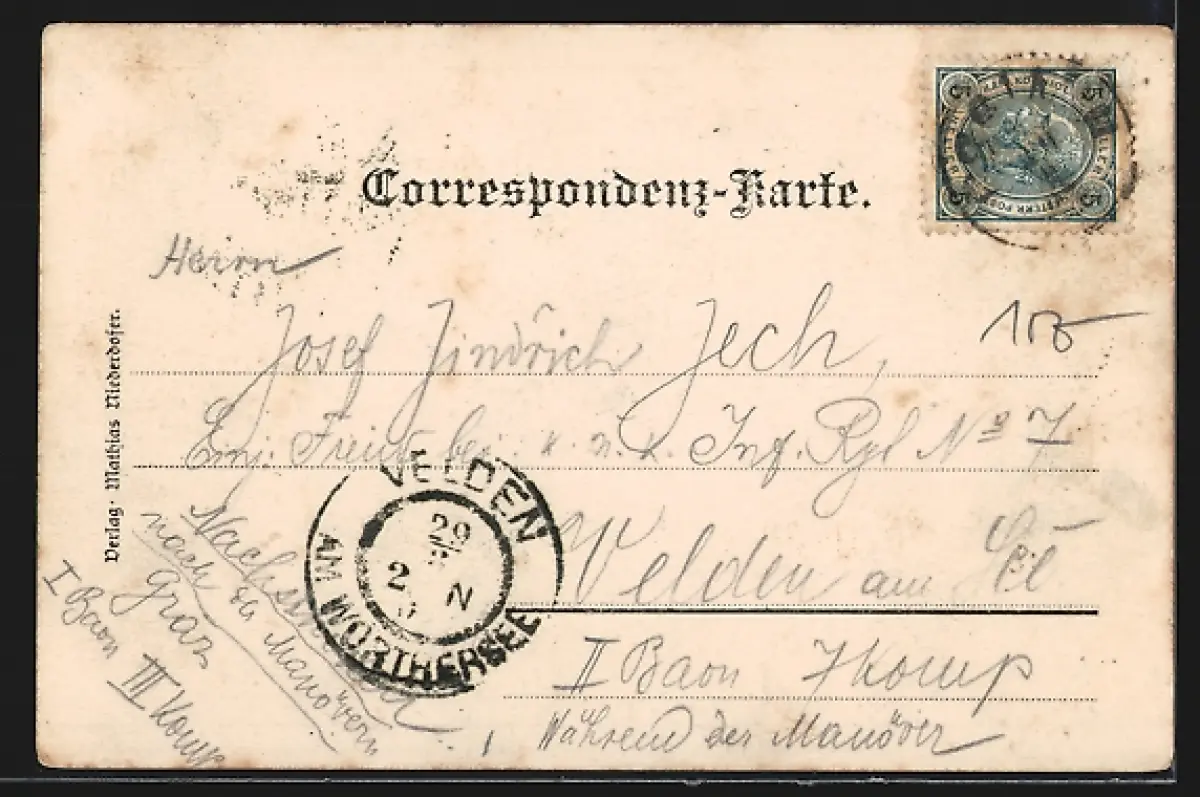 Correspondenz-Karte.
Herrn
Josef Jindřich Jech,
Einj. Freiw. bei k. u. k. Inf. Rgt No 7
Velden am
II Baon 7 Komp
Während der Manöver
nach
Manövern
nach
Graz
I Baon III Komp
Verlag. Mathias Niederdofer.
VELDEN
29
2 N
AM WÖRTHERSEE
5 5
5 5